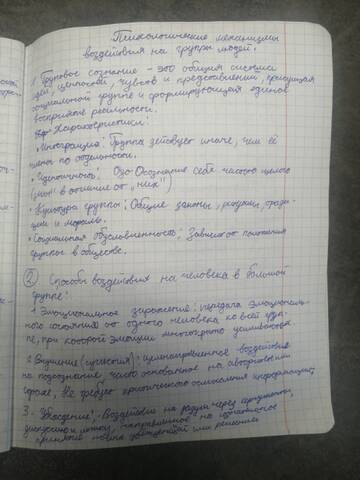 Психологические механизмы
воздействия на группы людей.
1. Групповое сознание - это общая система
идей, ценностей, чувств и представлений, присущая
социальной группе и формирующая единое
восприятие реальности.
Характеристики:
• Интеграция: Группа действует иначе, чем её
члены по отдельности.
• Идентичность: Осознание себя частью целого
("мы" в отличие от "них")
• Культура группы: Общие законы, традиции
и мораль.
• Социальная обусловленность: Зависит от положения
группы в обществе.
② Способы воздействия на человека в большой
группе:
1 Эмоциональное заражение: передача эмоциональ-
ного состояния от одного человека ко всей груп-
пе, при которой эмоции многократно усиливаются
2 Внушение (суггестия): целенаправленное воздействие
на подсознание, часто основанное на авторитете или
страхе. Не требует критического осмысления информации
3. Убеждение: Воздействие на разум через аргументы,
дискуссию и логику, направленное на осознанное
принятие новых убеждений или решений